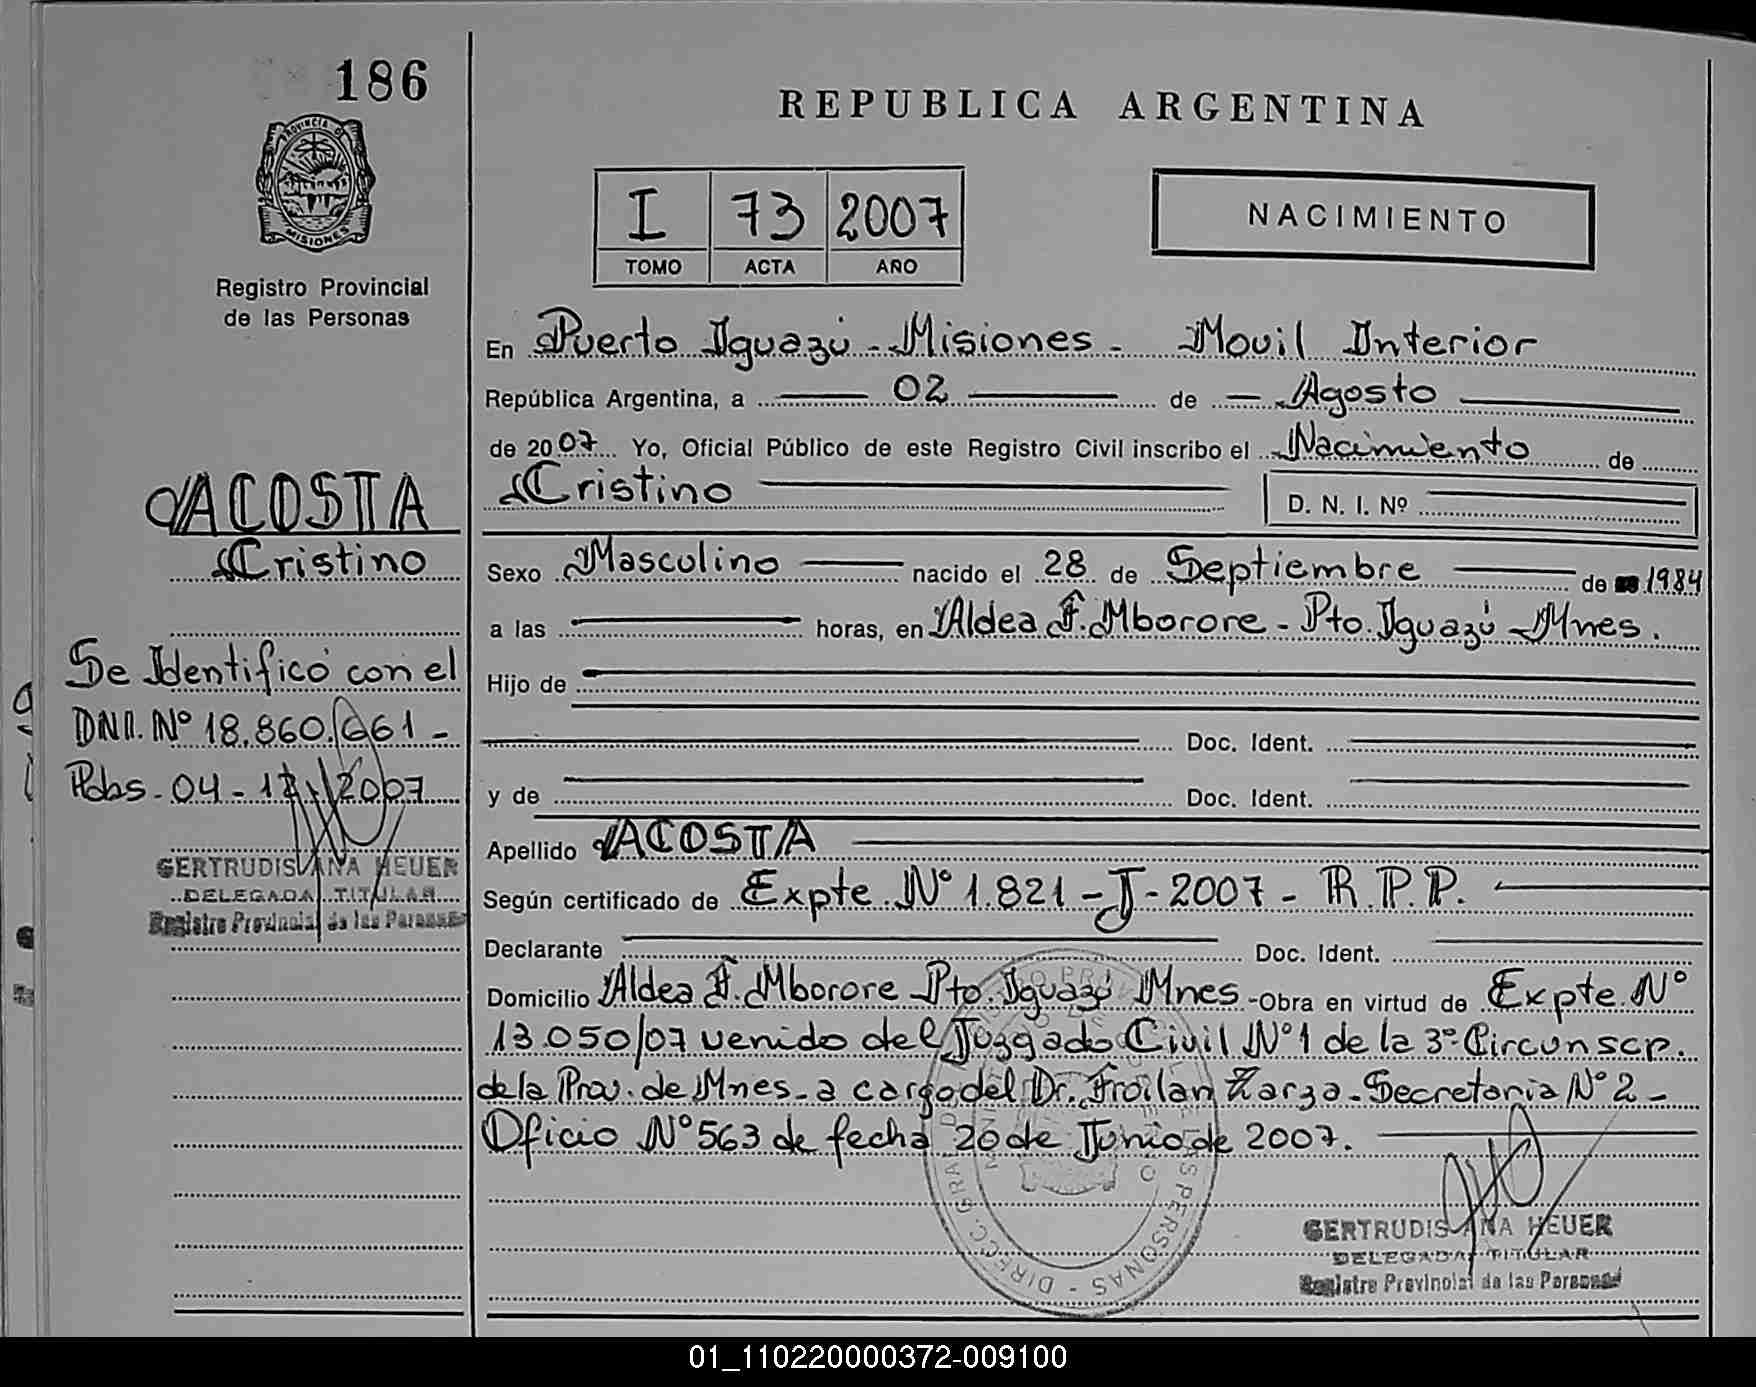 186
PROVINCIA DE
MISIONES
Registro Provincial
de las Personas
ACOSTA
Cristino
Se Identificó con el
DNI. Nº 18.860.661 -
Pdas - 04 - 12 - 2007
GERTRUDIS ANA HEUER
DELEGADA TITULAR
Registro Provincial de las Personas
REPUBLICA ARGENTINA
I 73 2007
TOMO ACTA AÑO
NACIMIENTO
En Puerto Iguazú - Misiones - Movil Interior
República Argentina, a 02 de Agosto
de 2007 Yo, Oficial Público de este Registro Civil inscribo el Nacimiento de
Cristino D. N. I. Nº
Sexo Masculino nacido el 28 de Septiembre de 1984
a las horas, en Aldea F. Mborore - Pto. Iguazú - Mnes.
Hijo de
Doc. Ident.
y de Doc. Ident.
Apellido ACOSTA
Según certificado de Expte. Nº 1.821 - J - 2007 - R.P.P.
Declarante Doc. Ident.
Domicilio Aldea F. Mborore Pto. Iguazú Mnes - Obra en virtud de Expte. Nº
13.050/07 venido del Juzgado Civil Nº 1 de la 3º Circunscp.
de la Prov. de Mnes - a cargo del Dr. Froilan Zarza - Secretaria Nº 2 -
Oficio Nº 563 de fecha 20 de Junio de 2007.
DIRECC. GRAL. PERSONAS
GERTRUDIS ANA HEUER
DELEGADA TITULAR
Registro Provincial de las Personas
01_110220000372-009100